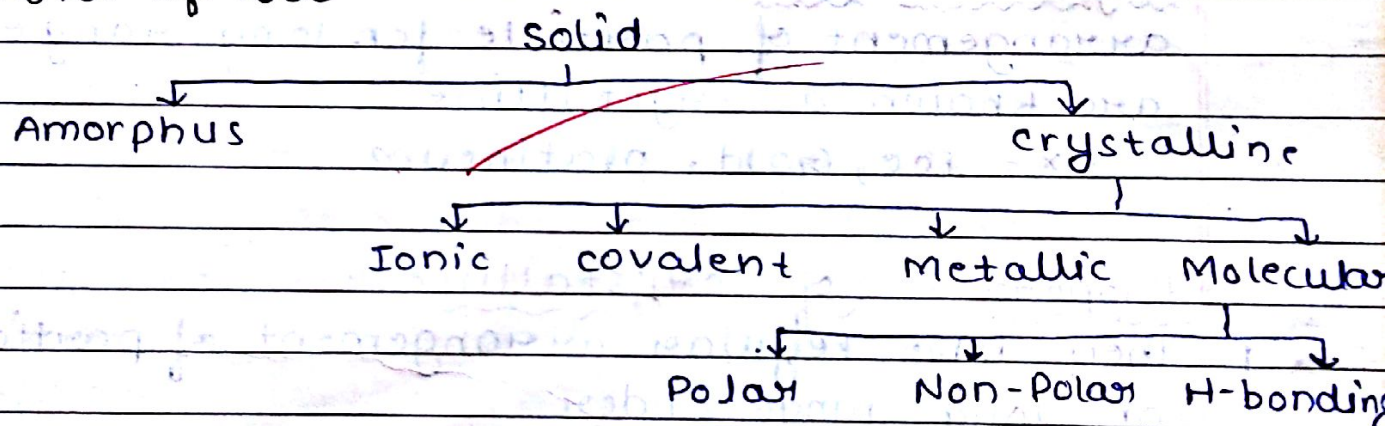 solid
Amorphus crystalline
Ionic covalent Metallic Molecular
Polar Non-Polar H-bonding